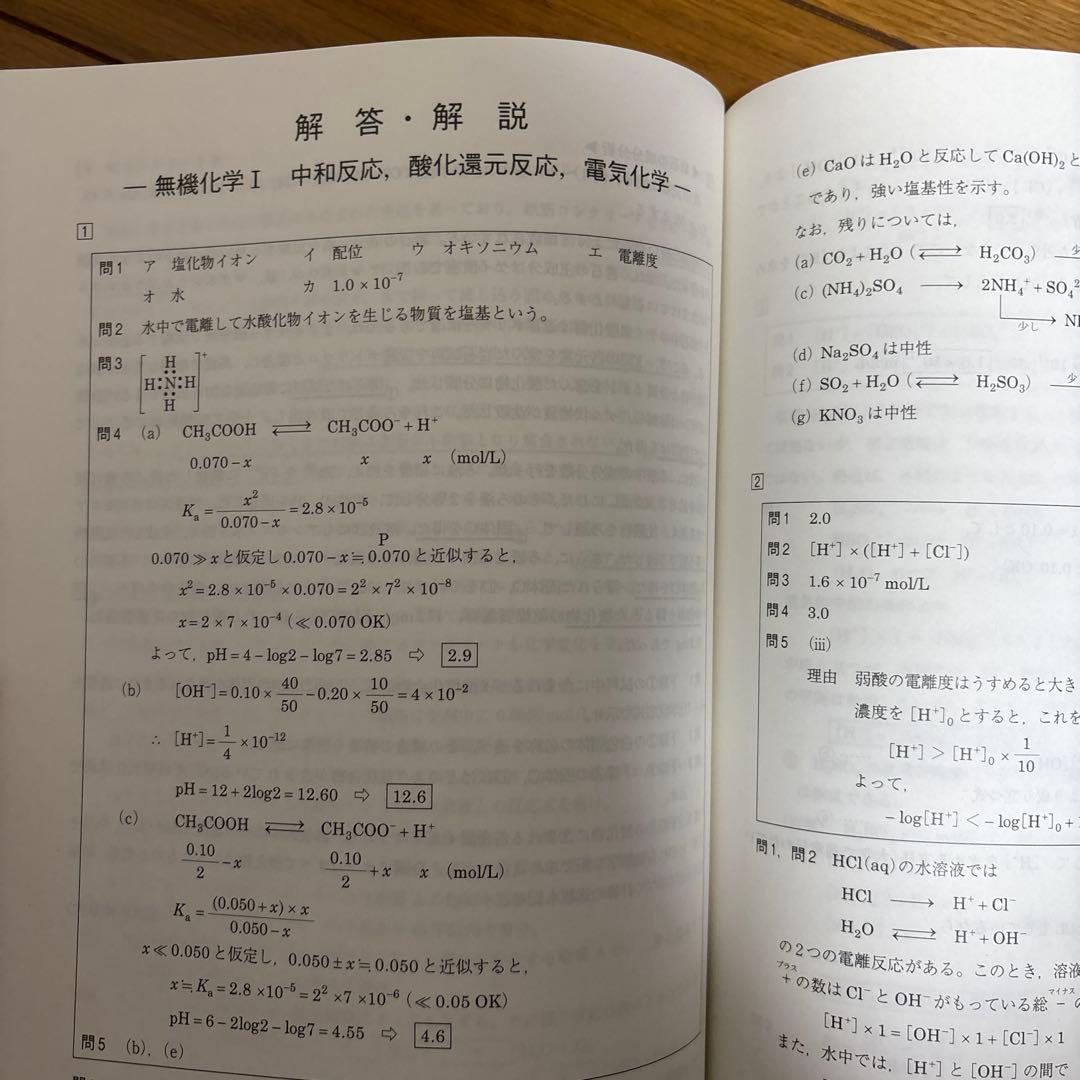 解答・解説
― 無機化学Ⅰ 中和反応, 酸化還元反応, 電気化学 ―
1
問1 ア 塩化物イオン イ 配位 ウ オキソニウム エ 電離度
オ 水 カ 1.0×10⁻⁷
問2 水中で電離して水酸化物イオンを生じる物質を塩基という。
問3 [H:N:H]⁺
H
H
問4 (a) CH₃COOH ⇄ CH₃COO⁻+H⁺
0.070−x x x (mol/L)
Kₐ=x²/(0.070−x)=2.8×10⁻⁵
P
0.070≫xと仮定し0.070−x≒0.070と近似すると,
x²=2.8×10⁻⁵×0.070=2²×7²×10⁻⁸
x=2×7×10⁻⁴(≪0.070 OK)
よって, pH=4−log2−log7=2.85 ⇨ 2.9
(b) [OH⁻]=0.10×40/50−0.20×10/50=4×10⁻²
∴ [H⁺]=1/4×10⁻¹²
pH=12+2log2=12.60 ⇨ 12.6
(c) CH₃COOH ⇄ CH₃COO⁻+H⁺
0.10/2−x 0.10/2+x x (mol/L)
Kₐ=(0.050+x)×x/(0.050−x)
x≪0.050と仮定し, 0.050±x≒0.050と近似すると,
x≒Kₐ=2.8×10⁻⁵=2²×7×10⁻⁶(≪0.05 OK)
pH=6−2log2−log7=4.55 ⇨ 4.6
問5 (b), (e)
(e) CaOはH₂Oと反応してCa(OH)₂と
であり, 強い塩基性を示す。
なお, 残りについては,
(a) CO₂+H₂O(⇄ H₂CO₃) 少
(c) (NH₄)₂SO₄ → 2NH₄⁺+SO₄²
少し
(d) Na₂SO₄は中性
(f) SO₂+H₂O(⇄ H₂SO₃) 少
(g) KNO₃は中性
2
問1 2.0
問2 [H⁺]×([H⁺]+[Cl⁻])
問3 1.6×10⁻⁷ mol/L
問4 3.0
問5 (iii)
理由 弱酸の電離度はうすめると大き
濃度を[H⁺]₀とすると, これを
[H⁺]>[H⁺]₀×1/10
よって,
−log[H⁺]<−log[H⁺]₀+
問1, 問2 HCl(aq)の水溶液では
HCl → H⁺+Cl⁻
H₂O ⇄ H⁺+OH⁻
の2つの電離反応がある。このとき, 溶液
プラス マイナス
+の数はCl⁻とOH⁻がもっている総−の
[H⁺]×1=[OH⁻]×1+[Cl⁻]×1
また, 水中では, [H⁺]と[OH⁻]の間で